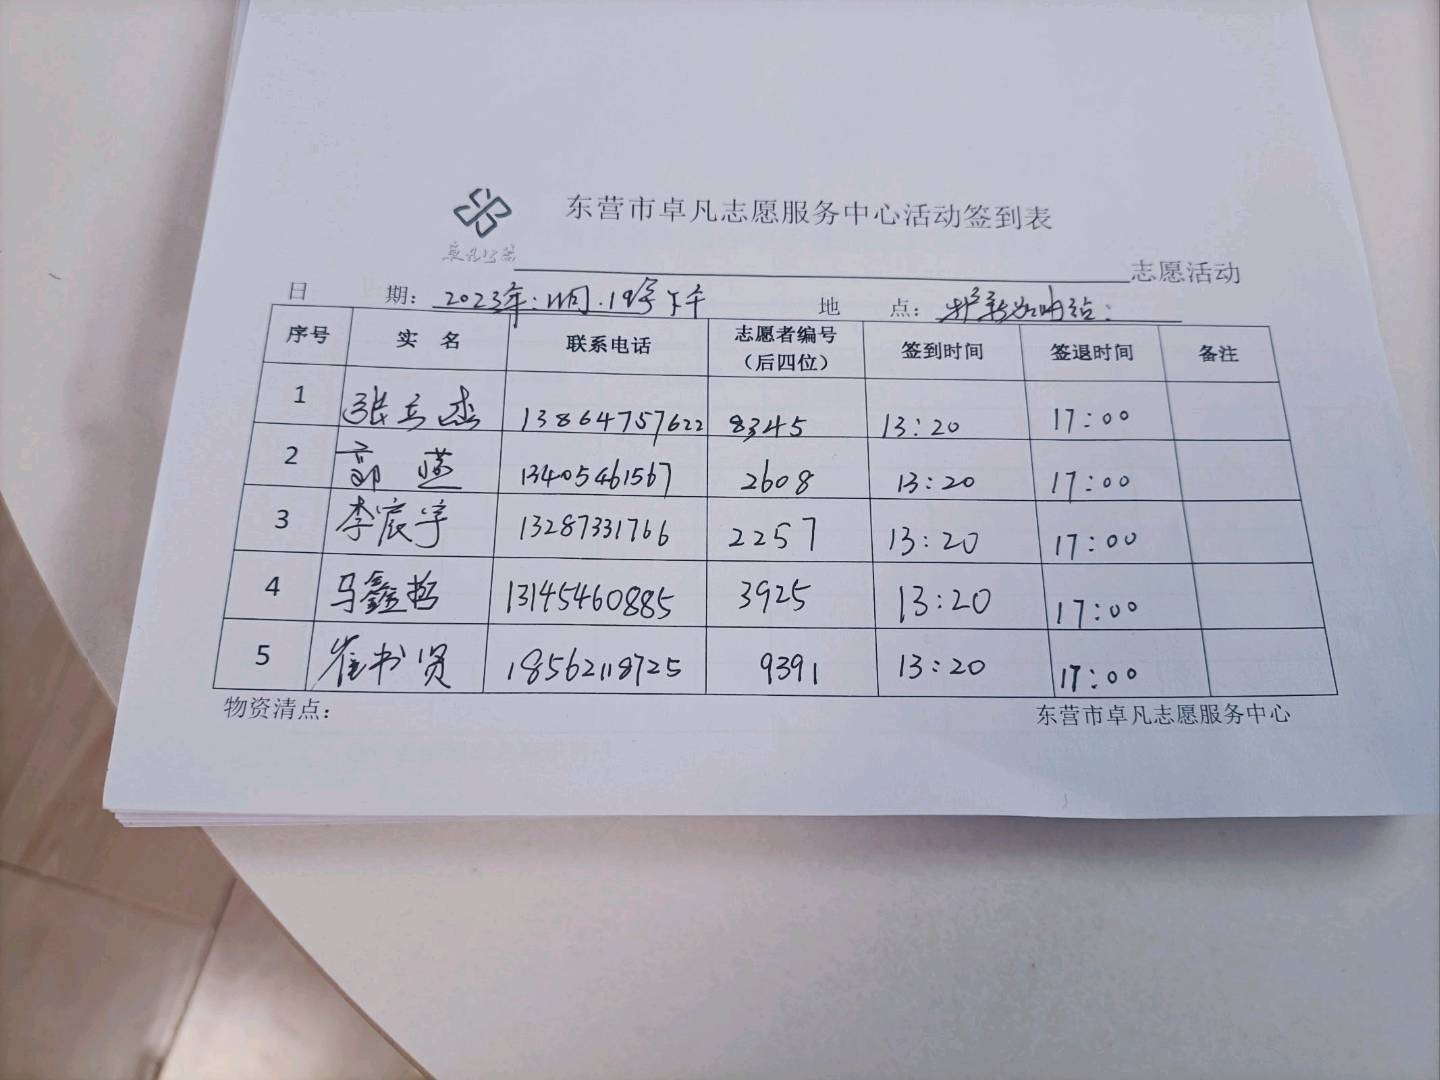 东营市卓凡志愿服务中心活动签到表
卓凡公益
志愿活动
日 期： 2023年.11月.19号下午 地 点：
序号 实 名 联系电话 志愿者编号（后四位） 签到时间 签退时间 备注
1 张立杰 13864757622 8345 13:20 17:00
2 郭燕 13405461567 2608 13:20 17:00
3 李宸宇 13287331766 2257 13:20 17:00
4 马鑫哲 13145460885 3925 13:20 17:00
5 崔书贤 18562118725 9391 13:20 17:00
物资清点： 东营市卓凡志愿服务中心